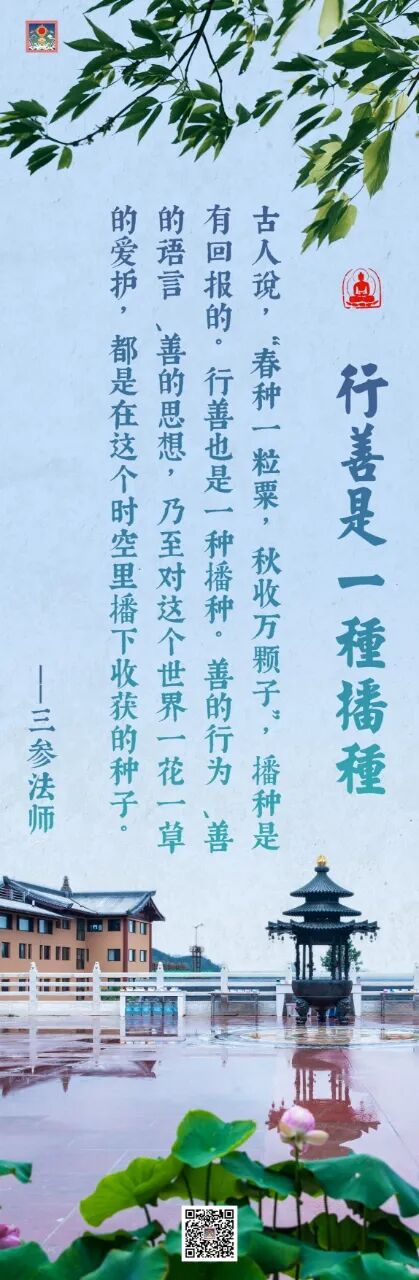 行善是一種播種
古人说，“春种一粒粟，秋收万颗子”，播种是
有回报的。行善也是一种播种。善的行为、善
的语言、善的思想，乃至对这个世界一花一草
的爱护，都是在这个时空里播下收获的种子。
——三参法师